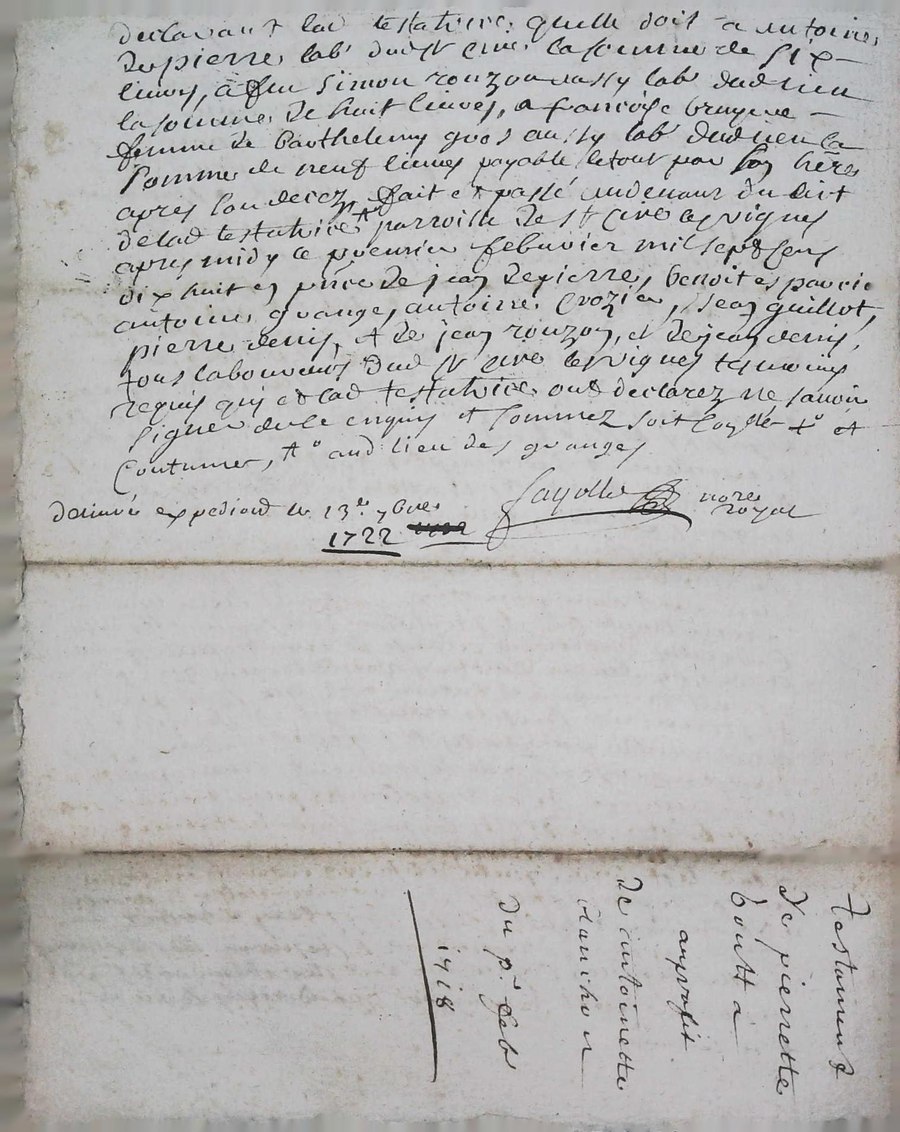 declarant lad testatrice quelle doit a Antoine
Depierre lab dud st cire la somme de six
livres, a feu Simon rouzon aussy lab dud lieu
la somme de huit livres, a francoise bruyere
femme de Barthelemy gros aussy lab dud lieu la
somme de neuf livres payable letout par son here
apres son decez, fait et passé audevant du dict
de lad testatrice parroisse de st cire les vignes
apres midy le premier febvrier mil sept cens
dix huit en pnce de jean Depierre, benoit et
antoine grange, antoine Crozier, jean guillot,
pierre denis, et de jean rouzon, et de jean denis,
tous laboureurs dud st cire les vignes tesmoins
requis qui et lad testatrice ont declarez ne savoir
signer de ce enquis et sommez soit scellé et
Coutumes, audlieu des granges
expedient le 13e 7bre
1722
fayolle nore
royal
Testament
De pierrette
a
auproffit
De antoinette
du pr feb
1718